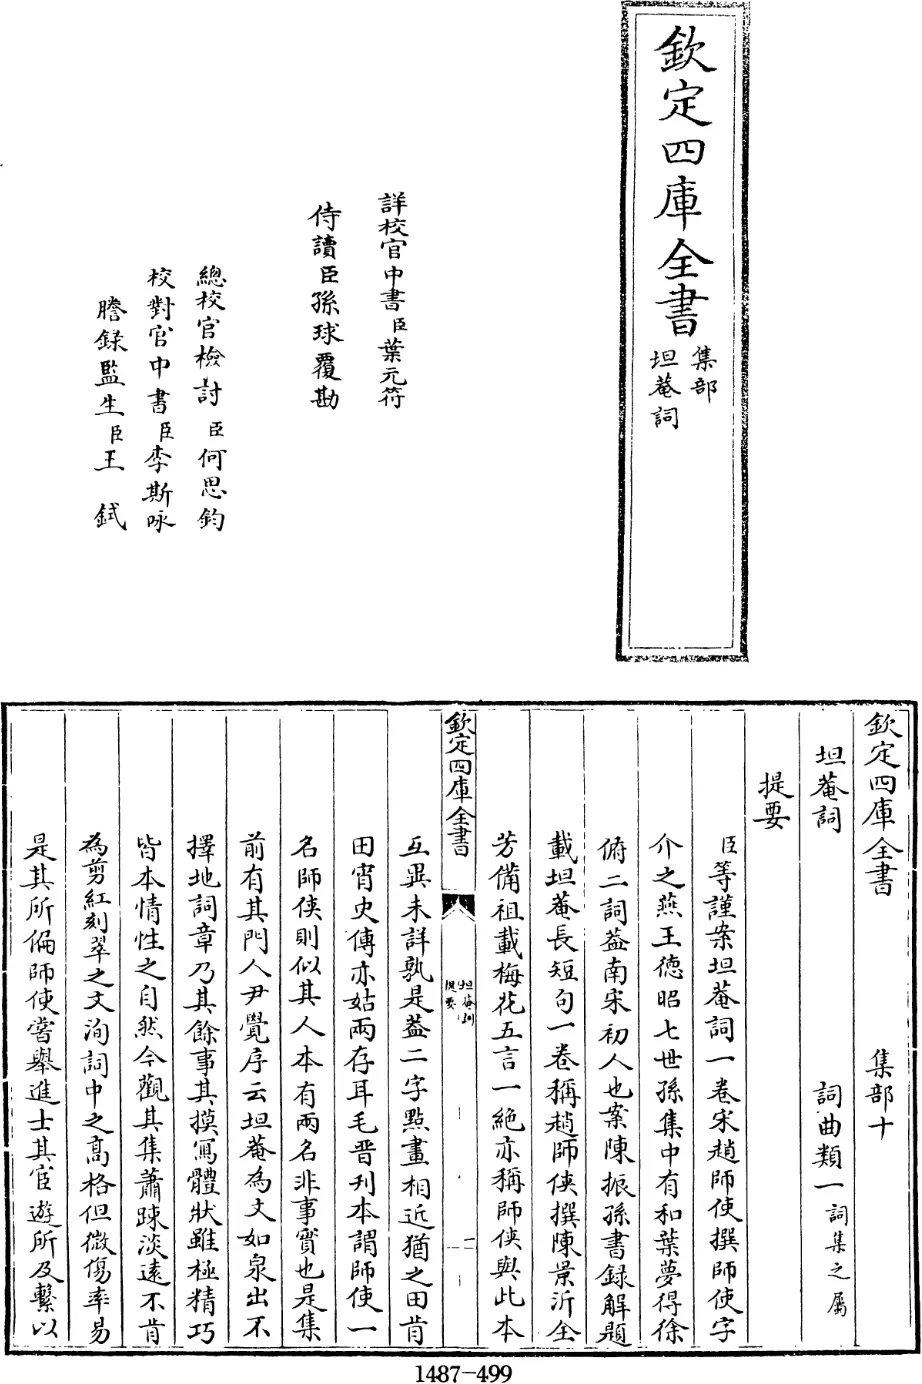 欽定四庫全書
集部
坦菴詞
詳校官中書臣葉元符
侍讀臣孫球覆勘
總校官檢討臣何思鈞
校對官中書臣李斯咏
謄録監生臣王　錻
欽定四庫全書　集部十
坦菴詞　詞曲類一詞集之屬
提要
臣等謹案坦菴詞一卷宋趙師使撰師使字
介之燕王徳昭七世孫集中有和葉夢得徐
俯二詞葢南宋初人也案陳振孫書録解題
載坦菴長短句一卷稱趙師侠撰陳景沂全
芳備祖載梅花五言一絶亦稱師侠與此本
欽定四庫全書
坦菴詞
提要
一
互異未詳孰是葢二字點畫相近猶之田肯
田宵史傳亦姑兩存耳毛晋刋本謂師使一
名師侠則似其人本有兩名非事實也是集
前有其門人尹覺序云坦菴為文如泉出不
擇地詞章乃其餘事其摸寫體狀雖極精巧
皆本情性之自然今觀其集蕭踈淡逺不肯
為剪紅刻翠之文洵詞中之髙格但微傷率易
是其所偏師使嘗舉進士其宦遊所及繫以
1487-499